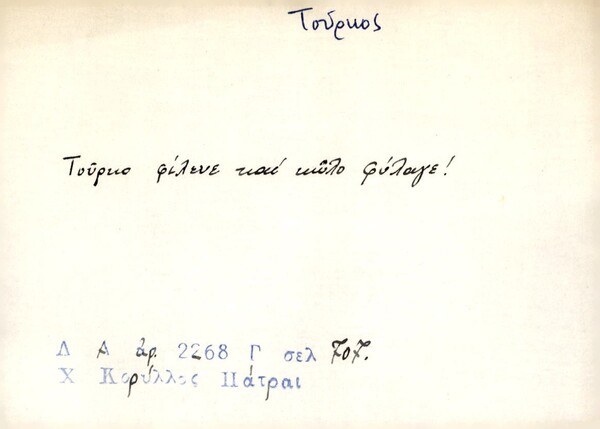 Τοῦρκος
Τοῦρκο φίλευε καί κῶλο φύλαγε!
Λ Α ἀρ. 2268 Γ σελ 707.
Χ Κορύλλος Πάτραι